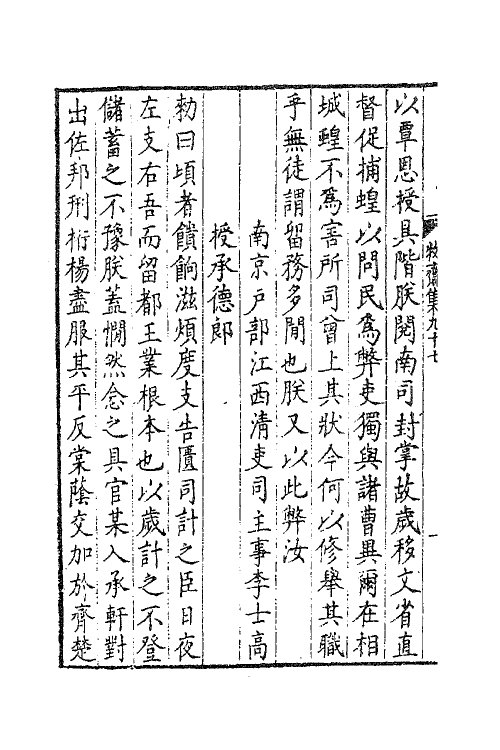 牧齋集九十七
一
以覃恩授具階朕閱南司封掌故歲移文省直
督促捕蝗以問民為弊吏獨與諸曹異爾在相
城蝗不為害所司曾上其狀今何以修舉其職
乎無徒謂留務多閒也朕又以此弊汝
南京戶部江西清吏司主事李士高
授承德郎
勑曰頃者饋餉滋煩度支告匱司計之臣日夜
左支右吾而留都王業根本也以歲計之不登
儲蓄之不豫朕蓋憪然念之具官某入承軒對
出佐邦刑桁楊盡服其平反棠蔭交加於齊楚